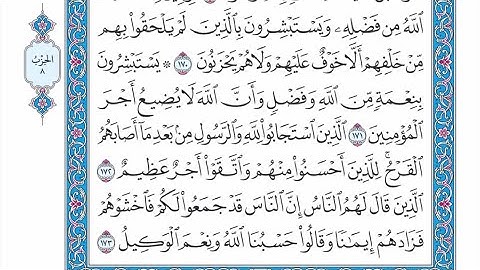 ٱللَّهُ مِن فَضْلِهِۦ وَيَسْتَبْشِرُونَ بِٱلَّذِينَ لَمْ يَلْحَقُوا۟ بِهِم
مِّنْ خَلْفِهِمْ أَلَّا خَوْفٌ عَلَيْهِمْ وَلَا هُمْ يَحْزَنُونَ ١٧٠ ۞ يَسْتَبْشِرُونَ
بِنِعْمَةٍ مِّنَ ٱللَّهِ وَفَضْلٍ وَأَنَّ ٱللَّهَ لَا يُضِيعُ أَجْرَ
ٱلْمُؤْمِنِينَ ١٧١ ٱلَّذِينَ ٱسْتَجَابُوا۟ لِلَّهِ وَٱلرَّسُولِ مِنۢ بَعْدِ مَآ أَصَابَهُمُ
ٱلْقَرْحُ ۚ لِلَّذِينَ أَحْسَنُوا۟ مِنْهُمْ وَٱتَّقَوْا۟ أَجْرٌ عَظِيمٌ ١٧٢
ٱلَّذِينَ قَالَ لَهُمُ ٱلنَّاسُ إِنَّ ٱلنَّاسَ قَدْ جَمَعُوا۟ لَكُمْ فَٱخْشَوْهُمْ
فَزَادَهُمْ إِيمَـٰنًا وَقَالُوا۟ حَسْبُنَا ٱللَّهُ وَنِعْمَ ٱلْوَكِيلُ ١٧٣
الحِزْبُ
٨